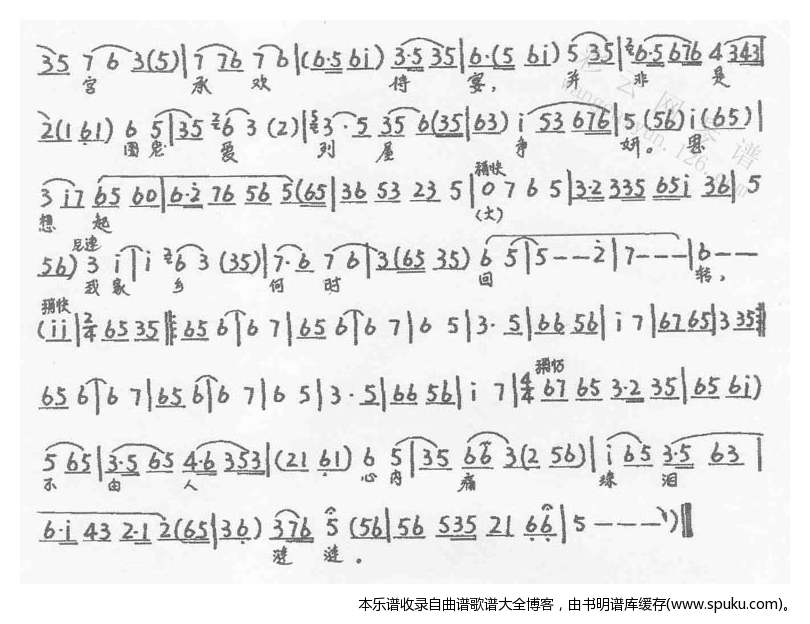 35 7 6 3(5)|7 76 7 6|(6·5 6i) 3·5 35|6·(5 6i) 5 35|6·5 676 4 343|
宫 承 欢 侍 宴, 并 非 是
2(1 61) 6 5|35 6 3 (2)|3·5 35 6(35|63) i 53 676|5 (56) i(65)|
图 恩 爱 列 屋 争 妍。 思
稍快
3 i7 65 60|6·2 76 56 5(65|36 53 23 5|0 7 6 5|3·2 335 65i 36|5
想 起 (大)
尼速
56) 3 i|i 6 3 (35)|7·6 7 6|3(65 35) 6 5|5--2|7---|6--
我 家 乡 何 时 回 转,
稍快
(ii|2/4 65 35|:65 6|6 7|65 6|6 7|6 5|3·5|66 56|i 7|6765|3 35:|
稍仿
65 6|6 7|65 6|6 7|6 5|3·5|66 56|i 7|4/4 67 65 3·2 35|65 6i)
5 65|3·5 65 4·6 353|(21 61) 6 5|35 66 3(2 56)|i 65 3·5 63|
不 由 人 心 内 痛 珠 泪
6·i 43 2·1 2(65|36) 376 5 (56|56 535 21 66|5---)‖
涟 涟。
本乐谱收录自曲谱歌谱大全博客，由书明谱库缓存(www.spuku.com)。